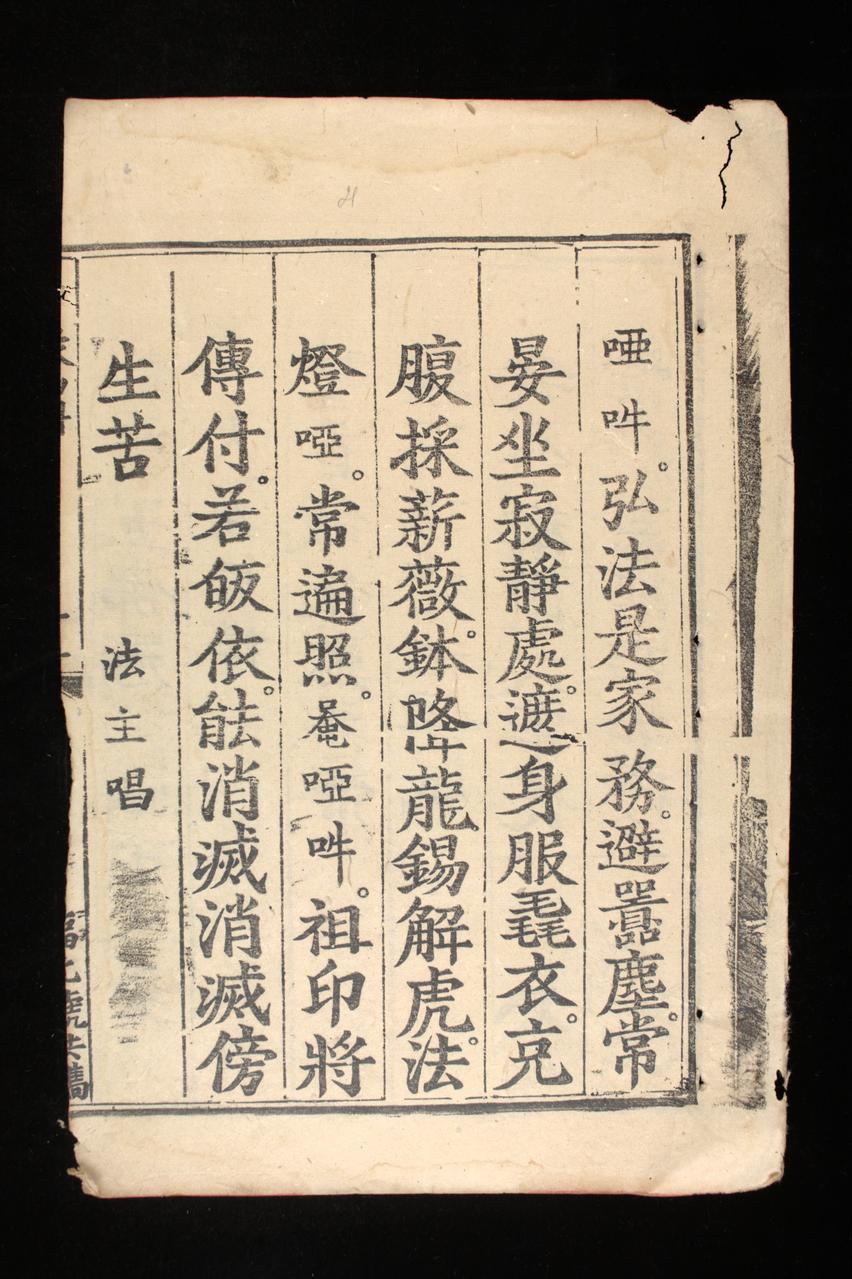 啞吽。弘法是家務。避嚣塵常
晏坐寂靜處。遮身服毳衣。充
腹採薪薇。鉢降龍錫解虎。法
燈啞。常遍照。菴啞吽。祖印將
傳付。若皈依。能消滅消滅傍
生苦　法主唱